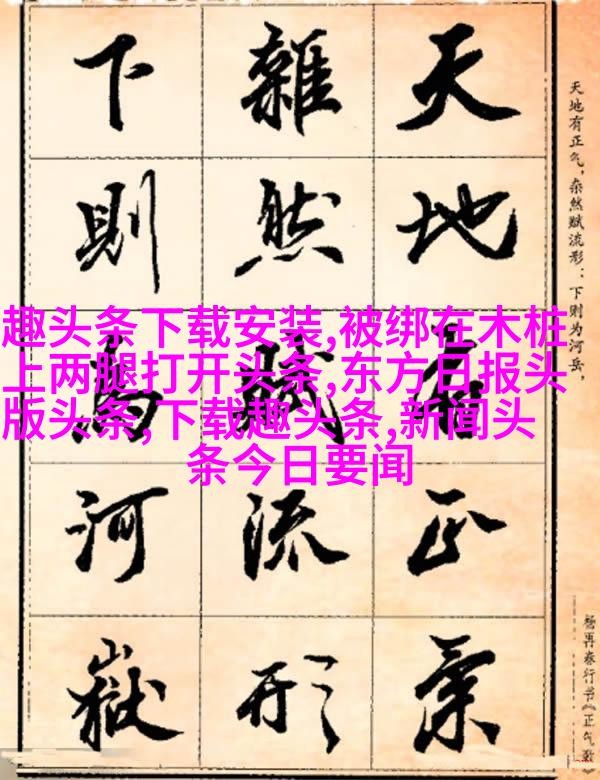 天地有正氣
雜然賦流形
下則為河嶽
天地有正气，杂然赋流形：下则为河岳，
杨再春行书《正气歌》
趣头条下载安装,被绑在木桩
上两腿打开头条,东方日报头
版头条,下载趣头条,新闻头
条今日要闻